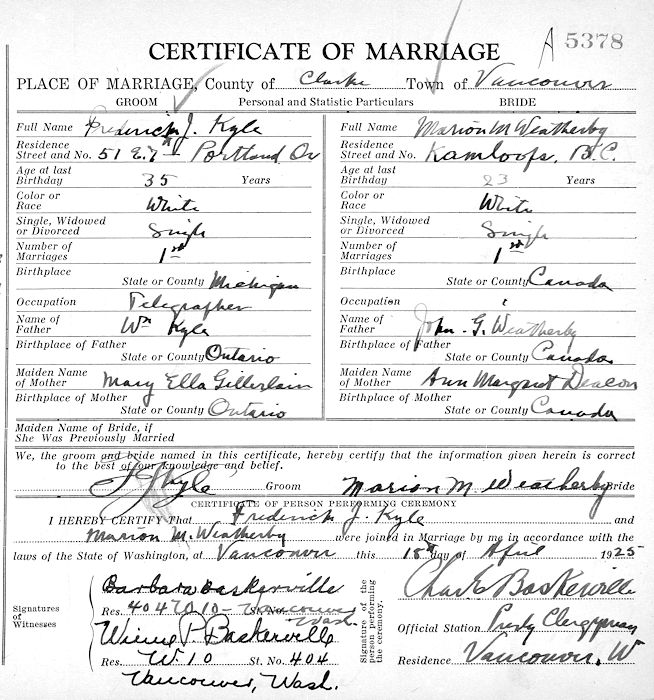 CERTIFICATE OF MARRIAGE A 5378
PLACE OF MARRIAGE, County of Clarke Town of Vancouver
GROOM Personal and Statistic Particulars BRIDE
Full Name Frederick J. Kyle Full Name Marion M Weatherby
Residence Street and No. 51 E. 7th Portland Or Residence Street and No. Kamloops, B.C.
Age at last Birthday 35 Years Age at last Birthday 23 Years
Color or Race White Color or Race White
Single, Widowed or Divorced Single Single, Widowed or Divorced Single
Number of Marriages 1st Number of Marriages 1st
Birthplace State or County Michigan Birthplace State or County Canada
Occupation Telegrapher Occupation
Name of Father Wm Kyle Name of Father John G. Weatherby
Birthplace of Father State or County Ontario Birthplace of Father State or County Canada
Maiden Name of Mother Mary Ella Maiden Name of Mother Ann Margaret Deacon
Birthplace of Mother State or County Ontario Birthplace of Mother State or County Canada
Maiden Name of Bride, if She Was Previously Married
We, the groom and bride named in this certificate, hereby certify that the information given herein is correct
to the best of our knowledge and belief.
F J Kyle Groom Marion M. Weatherby Bride
CERTIFICATE OF PERSON PERFORMING CEREMONY
I HEREBY CERTIFY That Frederick J. Kyle and
Marion M. Weatherby were joined in Marriage by me in accordance with the
laws of the State of Washington, at Vancouver this 18th day of April 1925
Signatures of Witnesses
Barbara Baskerville
Res. 404 W 10 - Vancouver Wash.
P. Baskerville
Res. W. 10 St. No. 404
Vancouver, Wash.
Signature of the person performing the ceremony.
Chas E Baskerville
Official Station Presby Clergyman
Residence Vancouver, W